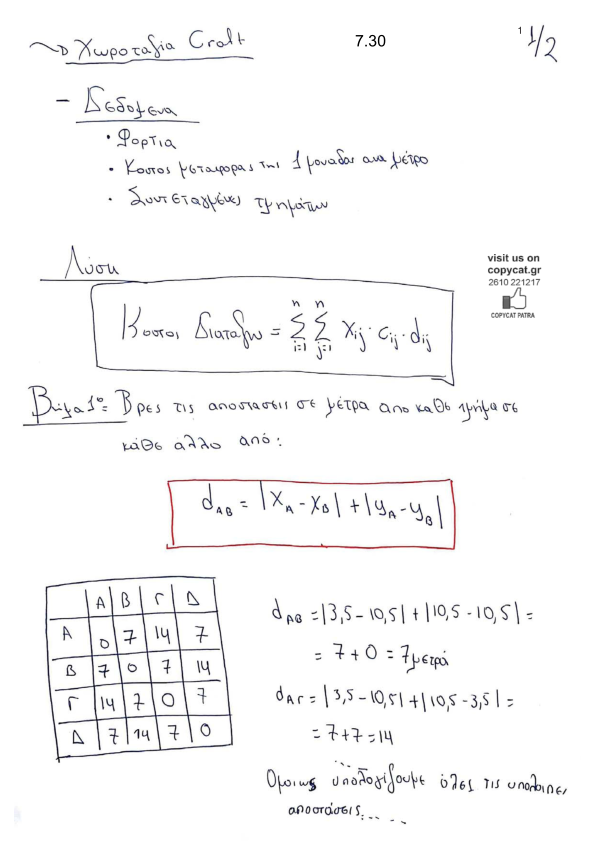 → Χωροταξία Craft 7.30 1 1/2
- Δεδομενα
• Φορτια
• Κοστος μεταφορας της 1 μοναδας ανα μέτρο
• Συντεταγμένες τμημάτων
Λύση
visit us on
copycat.gr
2610 221217
COPYCAT PATRA
Κοστος Διαταξης = Σ(i=1 to n) Σ(j=1 to n) xij · cij · dij
Βημα 1º: Βρες τις αποστασεις σε μέτρα απο καθε τμήμα σε
κάθε αλλο από:
dAB = |XA - XB| + |yA - yB|
A B Γ Δ
A 0 7 14 7
B 7 0 7 14
Γ 14 7 0 7
Δ 7 14 7 0
dAB = |3,5 - 10,5| + |10,5 - 10,5| =
= 7 + 0 = 7 μετρά
dAΓ = |3,5 - 10,5| + |10,5 - 3,5| =
= 7 + 7 = 14
...
Ομοιως υπολογίζουμε όλες τις υπολοιπες
αποστάσεις.....